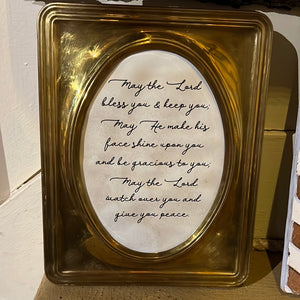 May the Lord
bless you & keep you;
May He make his
face shine upon you
and be gracious to you;
May the Lord
watch over you and
give you peace.